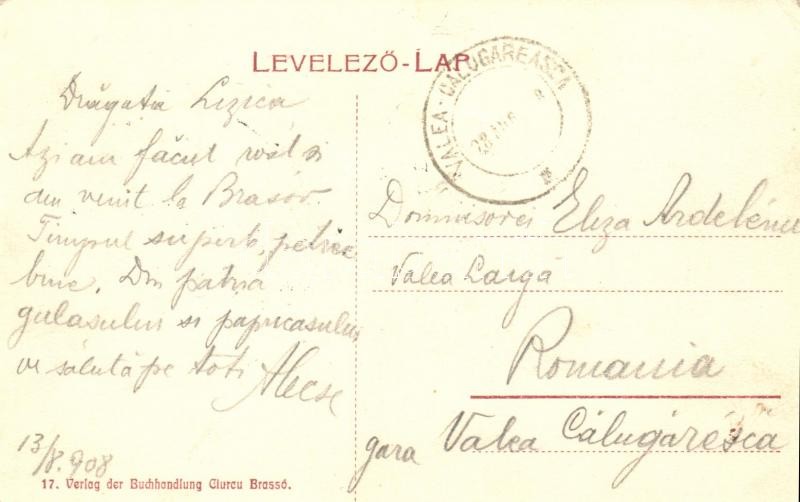 LEVELEZŐ-LAP
VALEA-CALUGAREASCA
Drăgata Lizica
Azi am făcut
am venit la Brasov.
Timpul superb, petrec
bine. Din patria
gulasului si papricasului
vè salută pe toti Alecse
13/8.908
Domnisorei Eliza Ardeleanu
Valea Largă
Romania
gara Valea Călugărésca
17. Verlag der Buchhandlung Ciurcu Brassó.